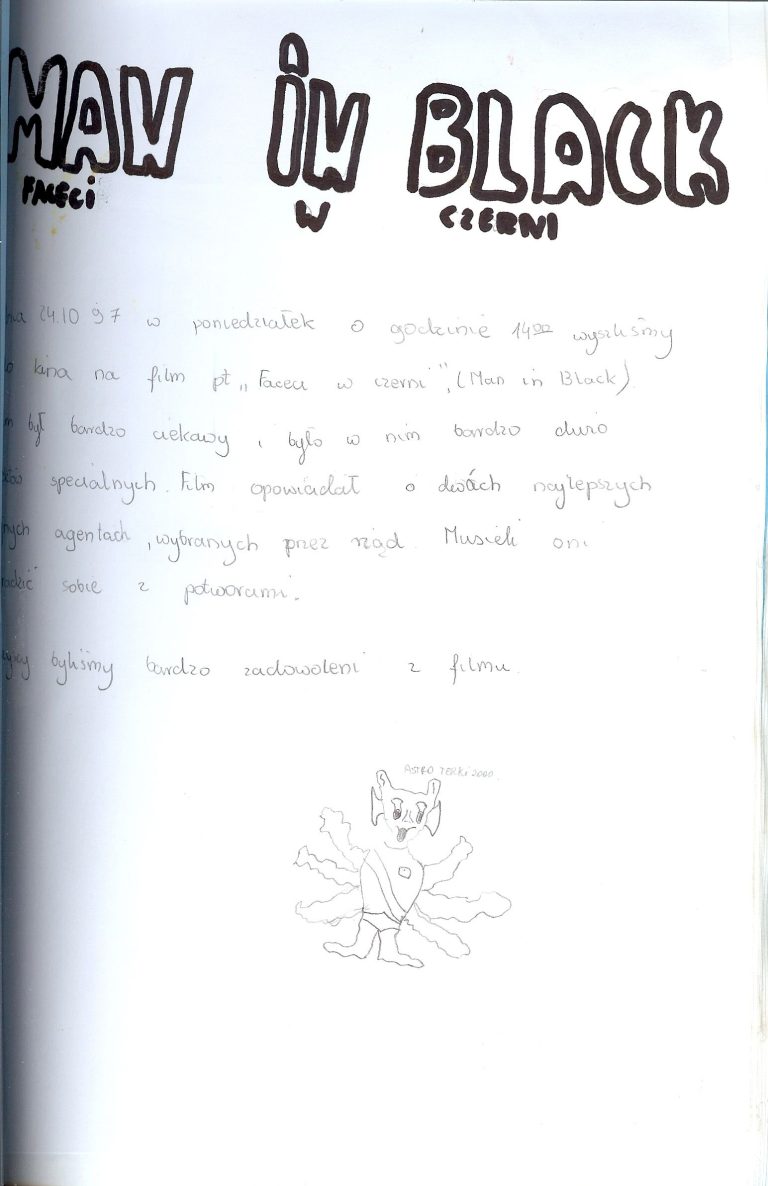 MAN IN BLACK
FACECI W CZERNI
24.10 97 w poniedziałek o godzinie 14⁰⁰ wyszliśmy
kina na film pt „Faceci w czerni”, (Man in Black)
był bardzo ciekawy i było w nim bardzo dużo
specialnych. Film opowiadał o dwóch najlepszych
agentach, wybranych przez rząd. Musieli oni
sobie z potworami.
byliśmy bardzo zadowoleni z filmu.
ASTRO TERKI 2000